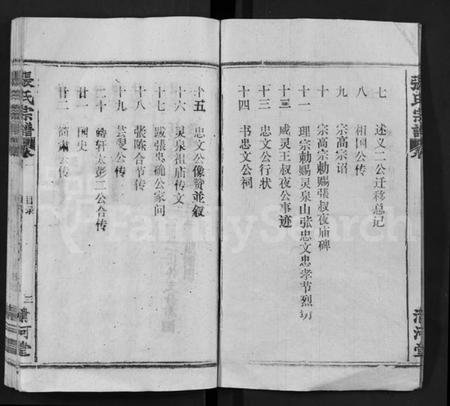 張氏宗譜
七 述义二公迁移总记
八 相国公传
九 宗高宗诏
十 宗高宗勅赐张叔夜庙碑
十一 理宗勅赐灵泉山张忠文忠孝节烈坊
十二 威灵王叔夜公事迹
十三 忠文公行状
十四 书忠文公祠
清河堂
十五 忠文公像赞並叙
十六 灵泉祖庙传文
十七 跋张忠确公家问
十八 张陈合节传
十九 芸叟公传
二十 轩太彭三公合传
廿一 国史
廿二 公传
張氏宗譜
目录
二
清河堂
FamilySearch